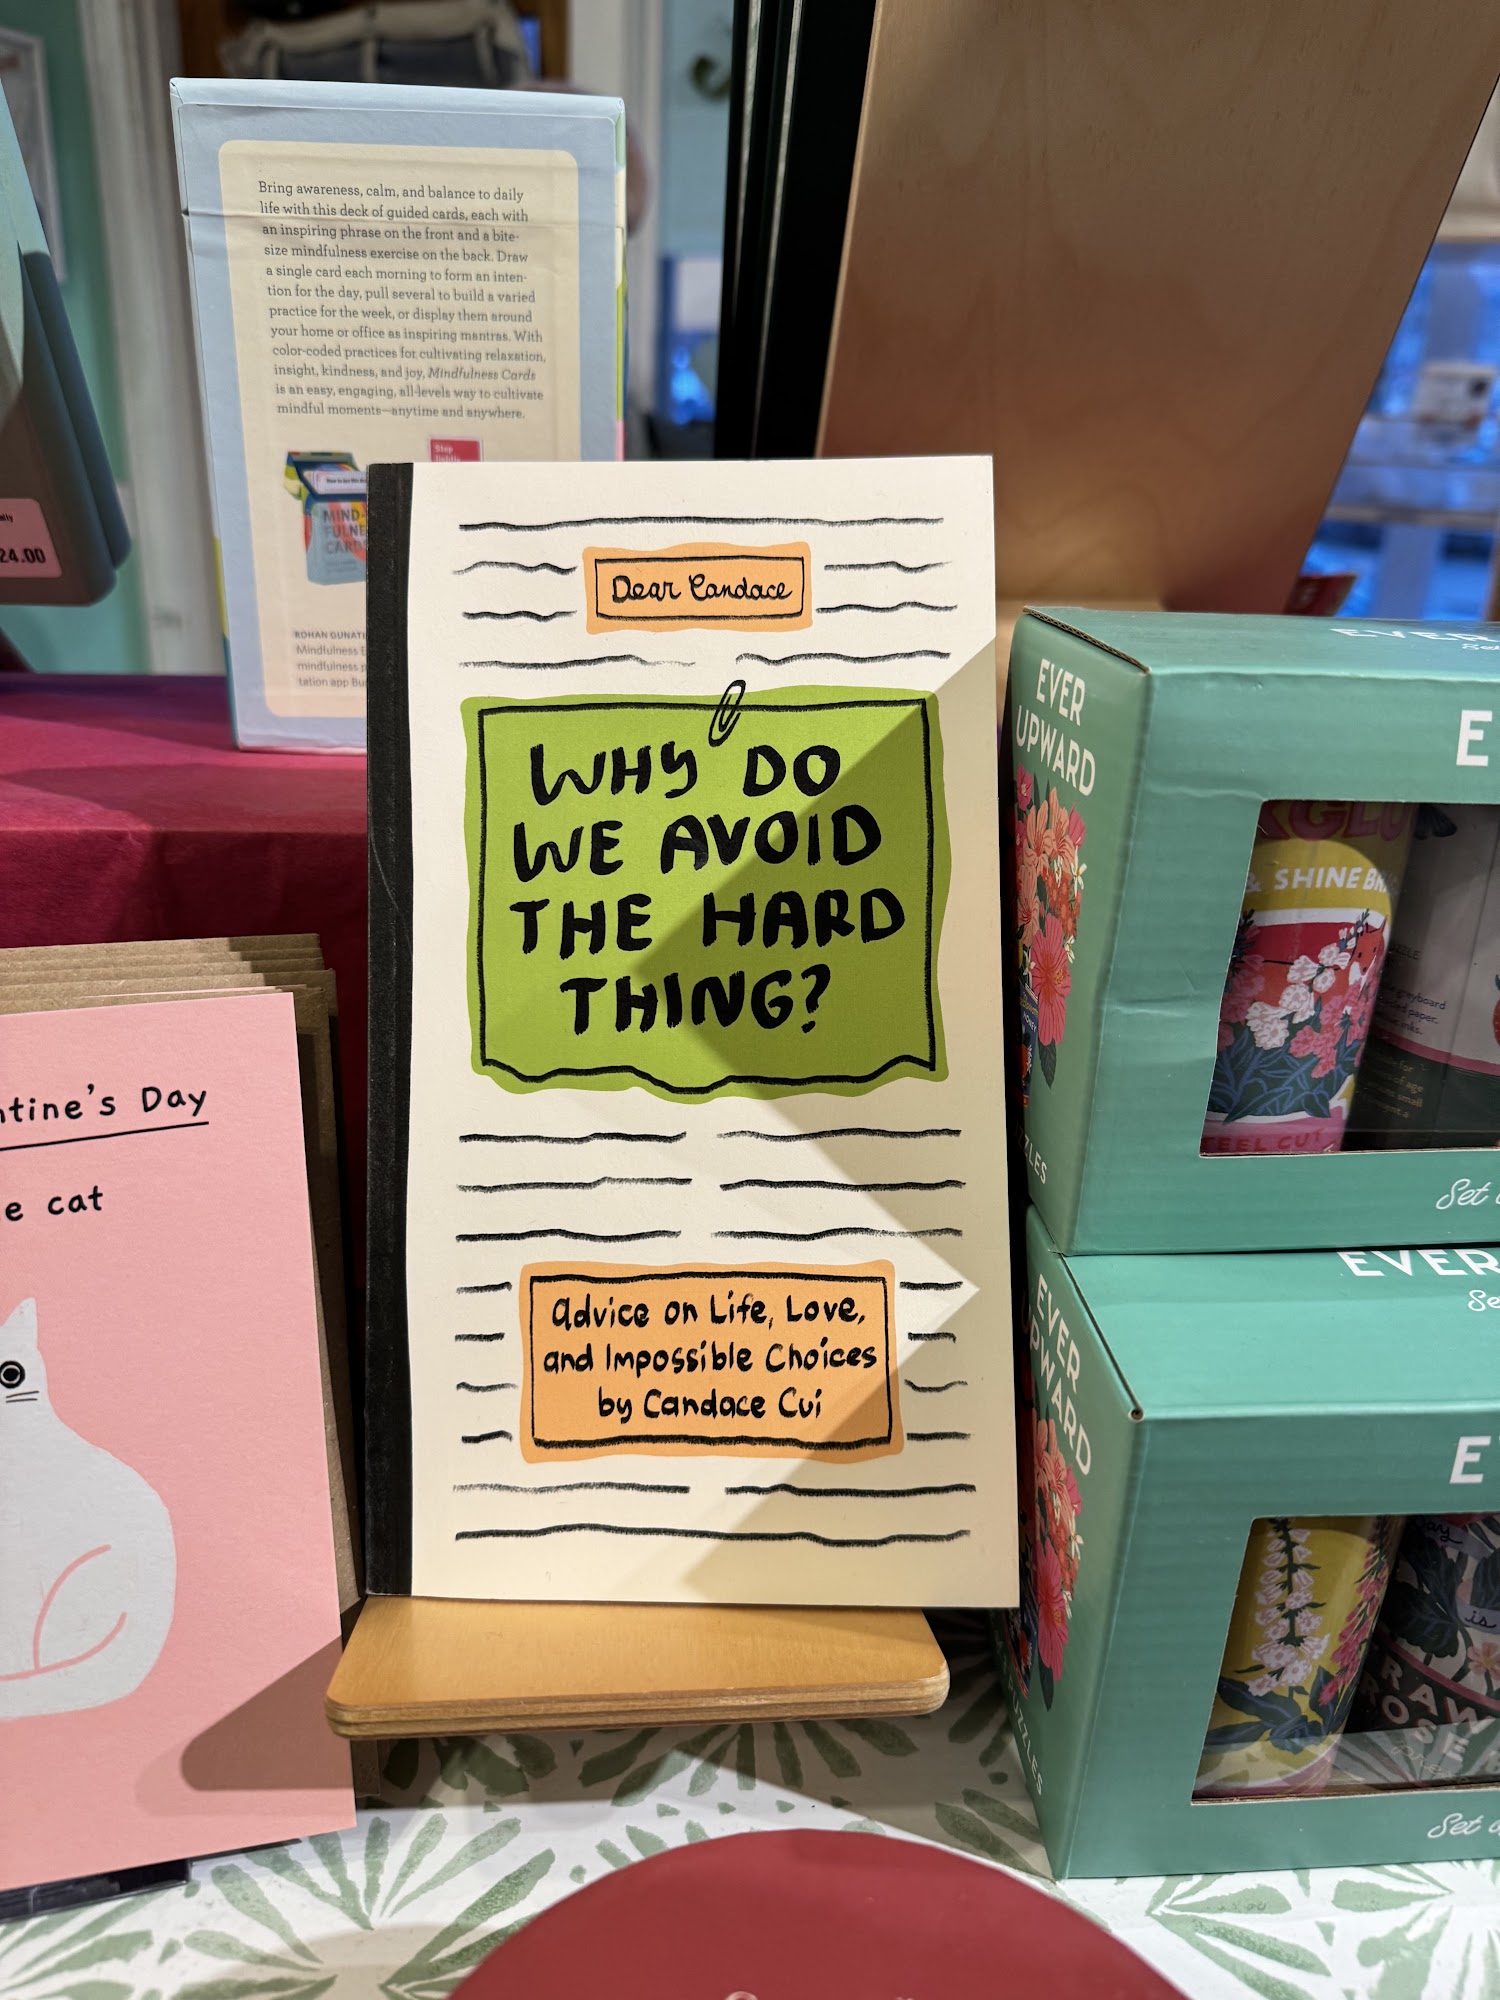 Bring awareness, calm, and balance to daily
life with this deck of guided cards, each with
an inspiring phrase on the front and a bite-
size mindfulness exercise on the back. Draw
a single card each morning to form an inten-
tion for the day, pull several to build a varied
practice for the week, or display them around
your home or office as inspiring mantras. With
color-coded practices for cultivating relaxation,
insight, kindness, and joy, Mindfulness Cards
is an easy, engaging, all-levels way to cultivate
mindful moments—anytime and anywhere.
MIND-
FULNE
CARD
ROHAN GUNATI
Mindfulness E
mindfulness p
tation app Bu
24.00
Dear Candace
WHY DO
WE AVOID
THE HARD
THING?
Advice on Life, Love,
and Impossible Choices
by Candace Cui
ntine's Day
e cat
EVER
UPWARD
E
& SHINE
STEEL CUT
Set
EVER
EVER
UPWARD
E
is
RAW
ROSE
Set